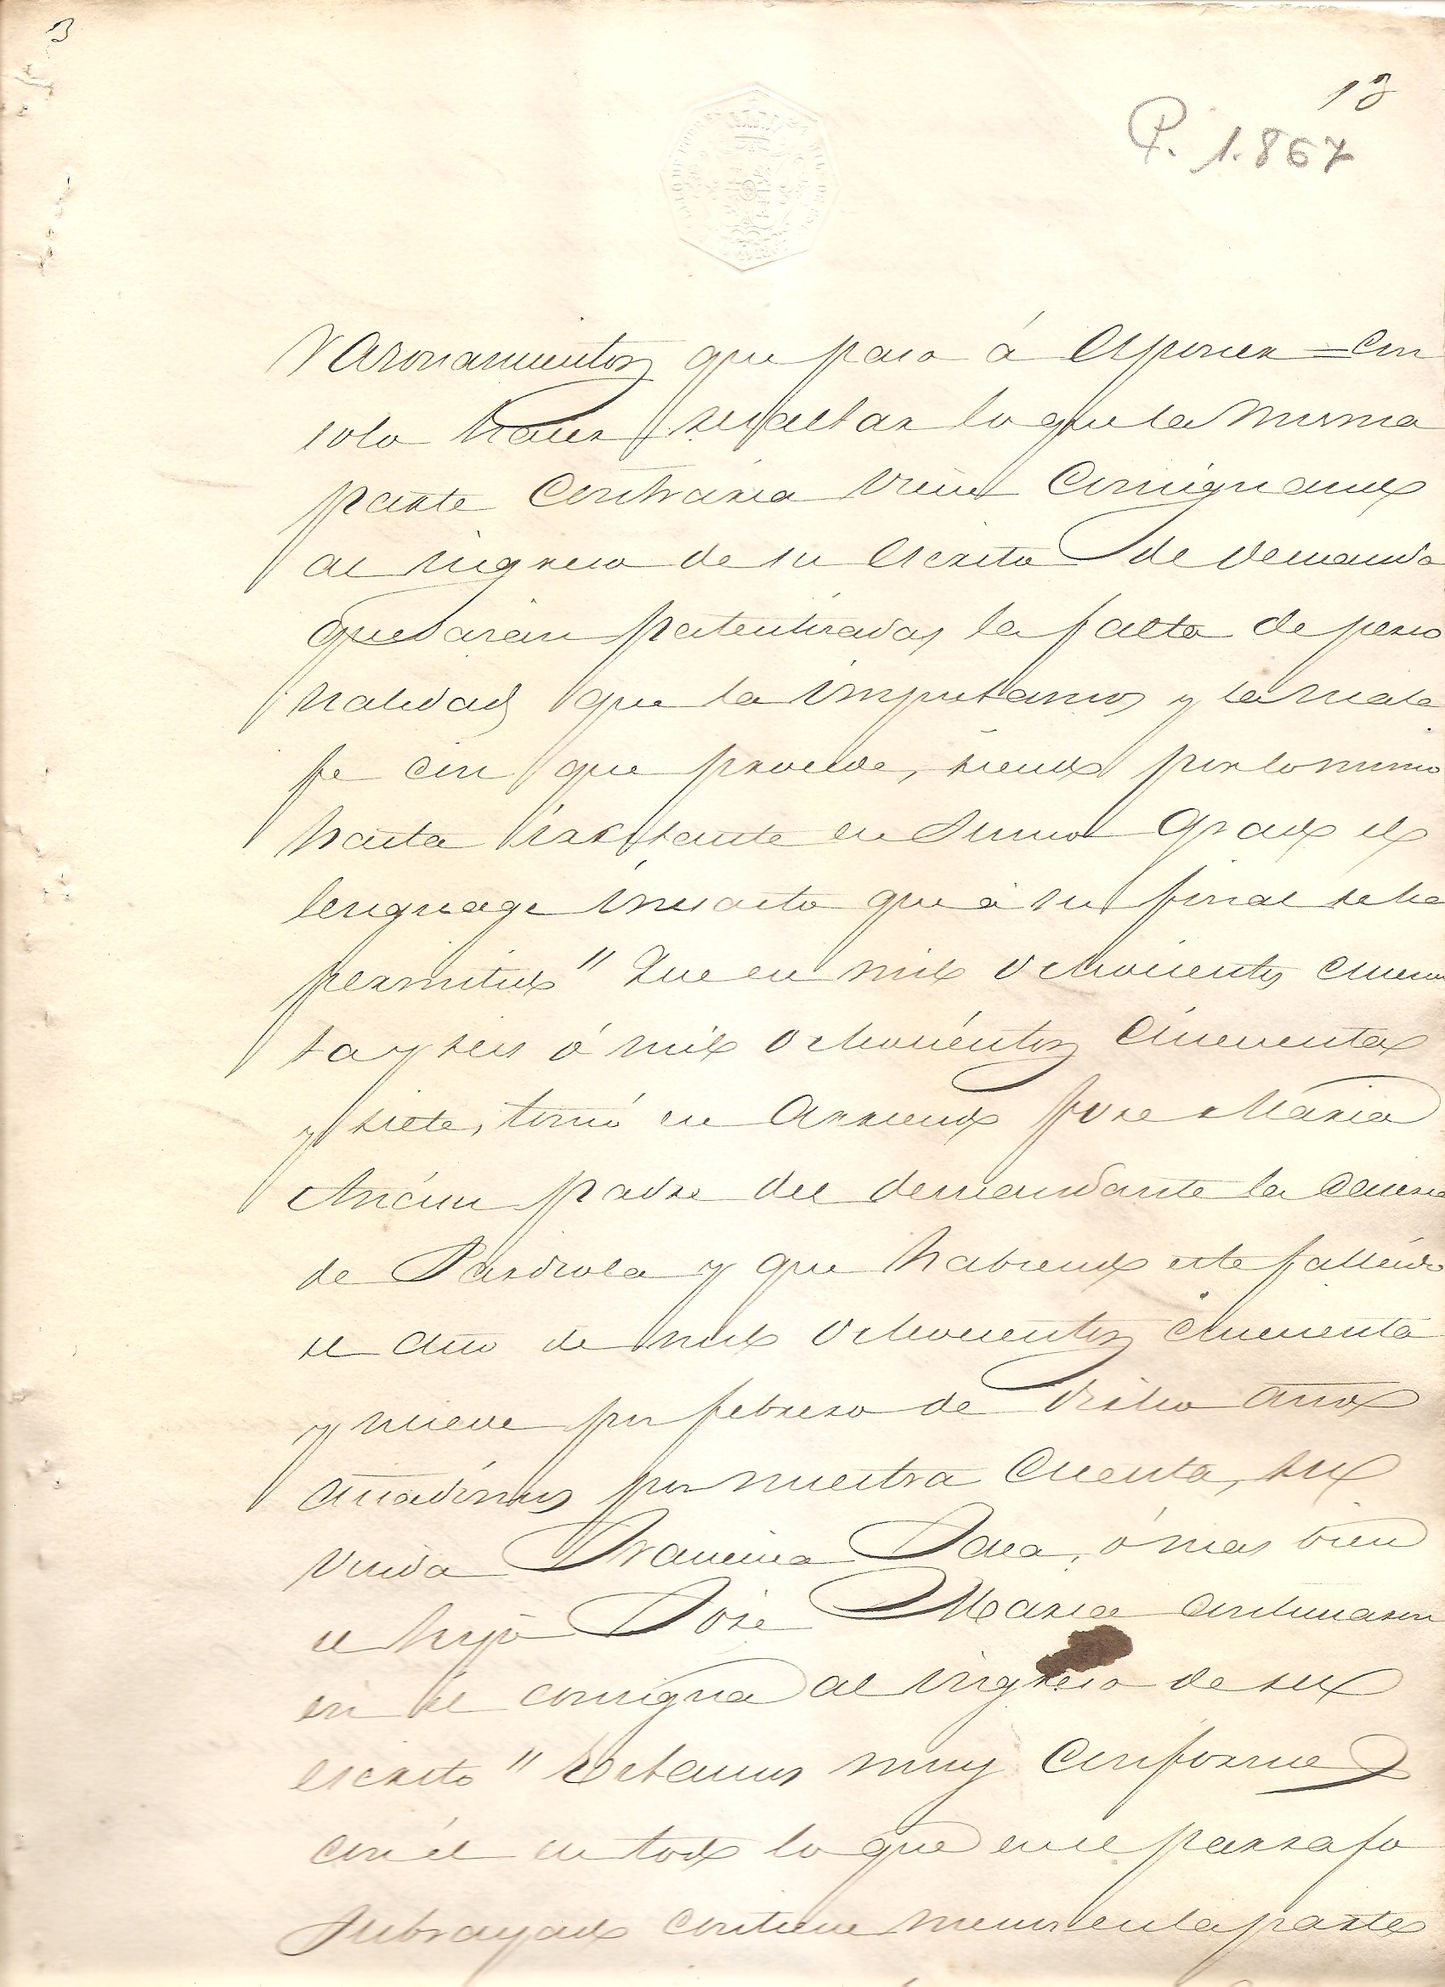 3
13
P. 1.867
rasonamientos que paso á esponer = con
solo hacer resaltar lo que la misma
parte contraria viene consignando
al ingreso de su escrito de demanda
quedarán patentizadas la falta de perso
nalidad que la imputamos y la mala
fe con que procede, siendo por lo mismo
harto irritante en sumo grado el
lenguage inesacto que á su final se ha
permitido " Que en mil ochocientos cincuen
ta y seis ó mil ochocientos cincuenta
y siete, tomó en arriendo Jose Maria
padre del demandante la casería
de y que habiendo este fallecido
el año de mil ochocientos cincuenta
y nueve por febrero de dicho año
añadimos por nuestra cuenta, su
viuda Francisca ó mas bien
el hijo José Maria continuaron
en él consigna al ingreso de su
escrito " Estamos muy conformes
con él en todo lo que en el parrafo
subrayado contiene menos en la parte